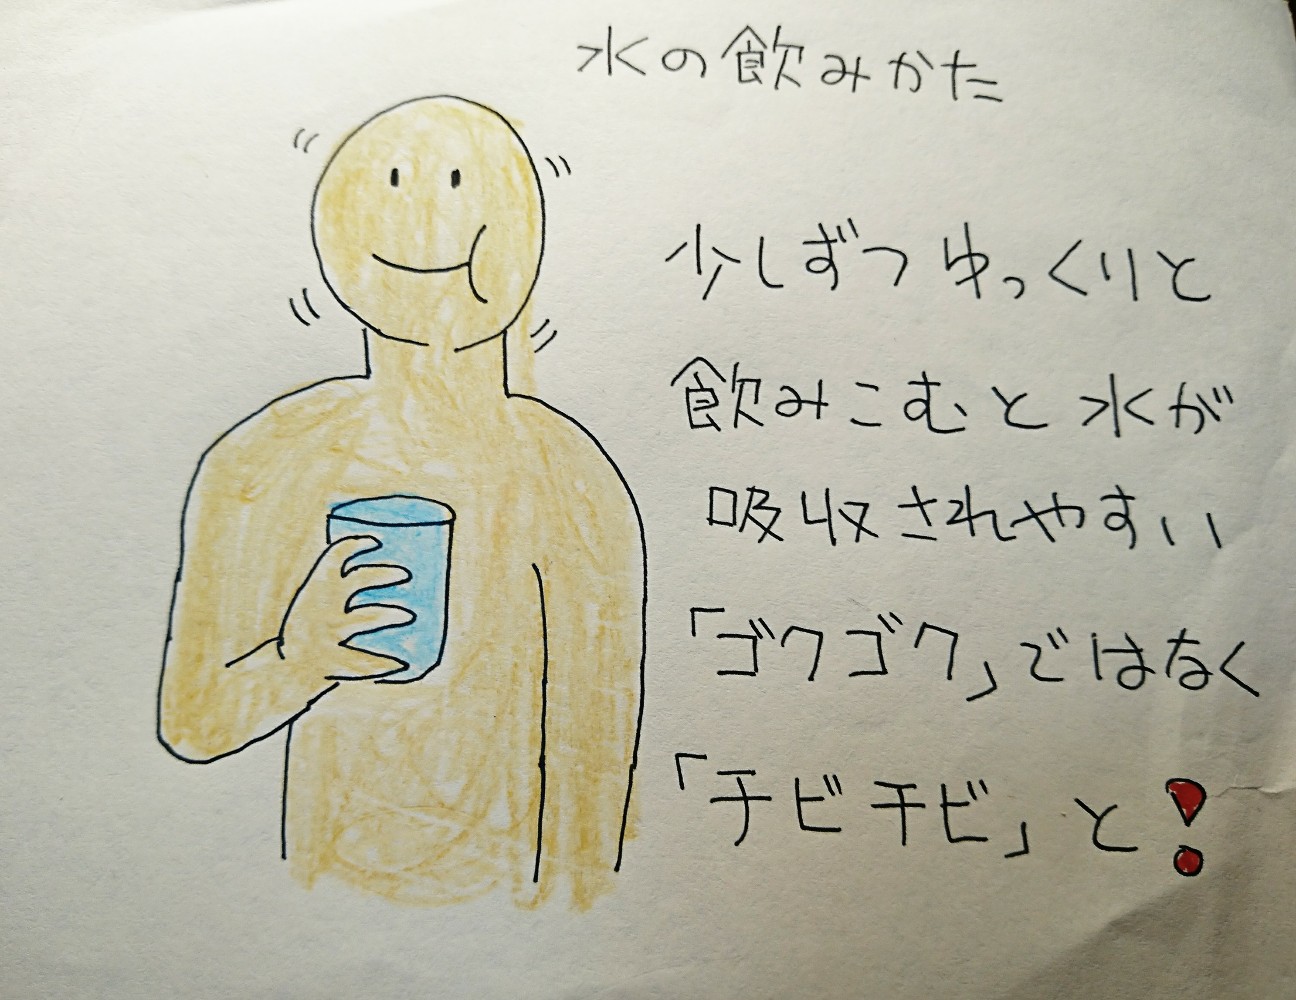 水の飲みかた
少しずつゆっくりと
飲みこむと水が
吸収されやすい
「ゴクゴク」ではなく
「チビチビ」と❗